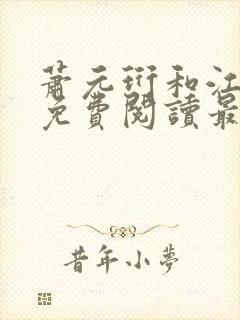 蕭元衍和江
免費閱讀最
昔年小夢